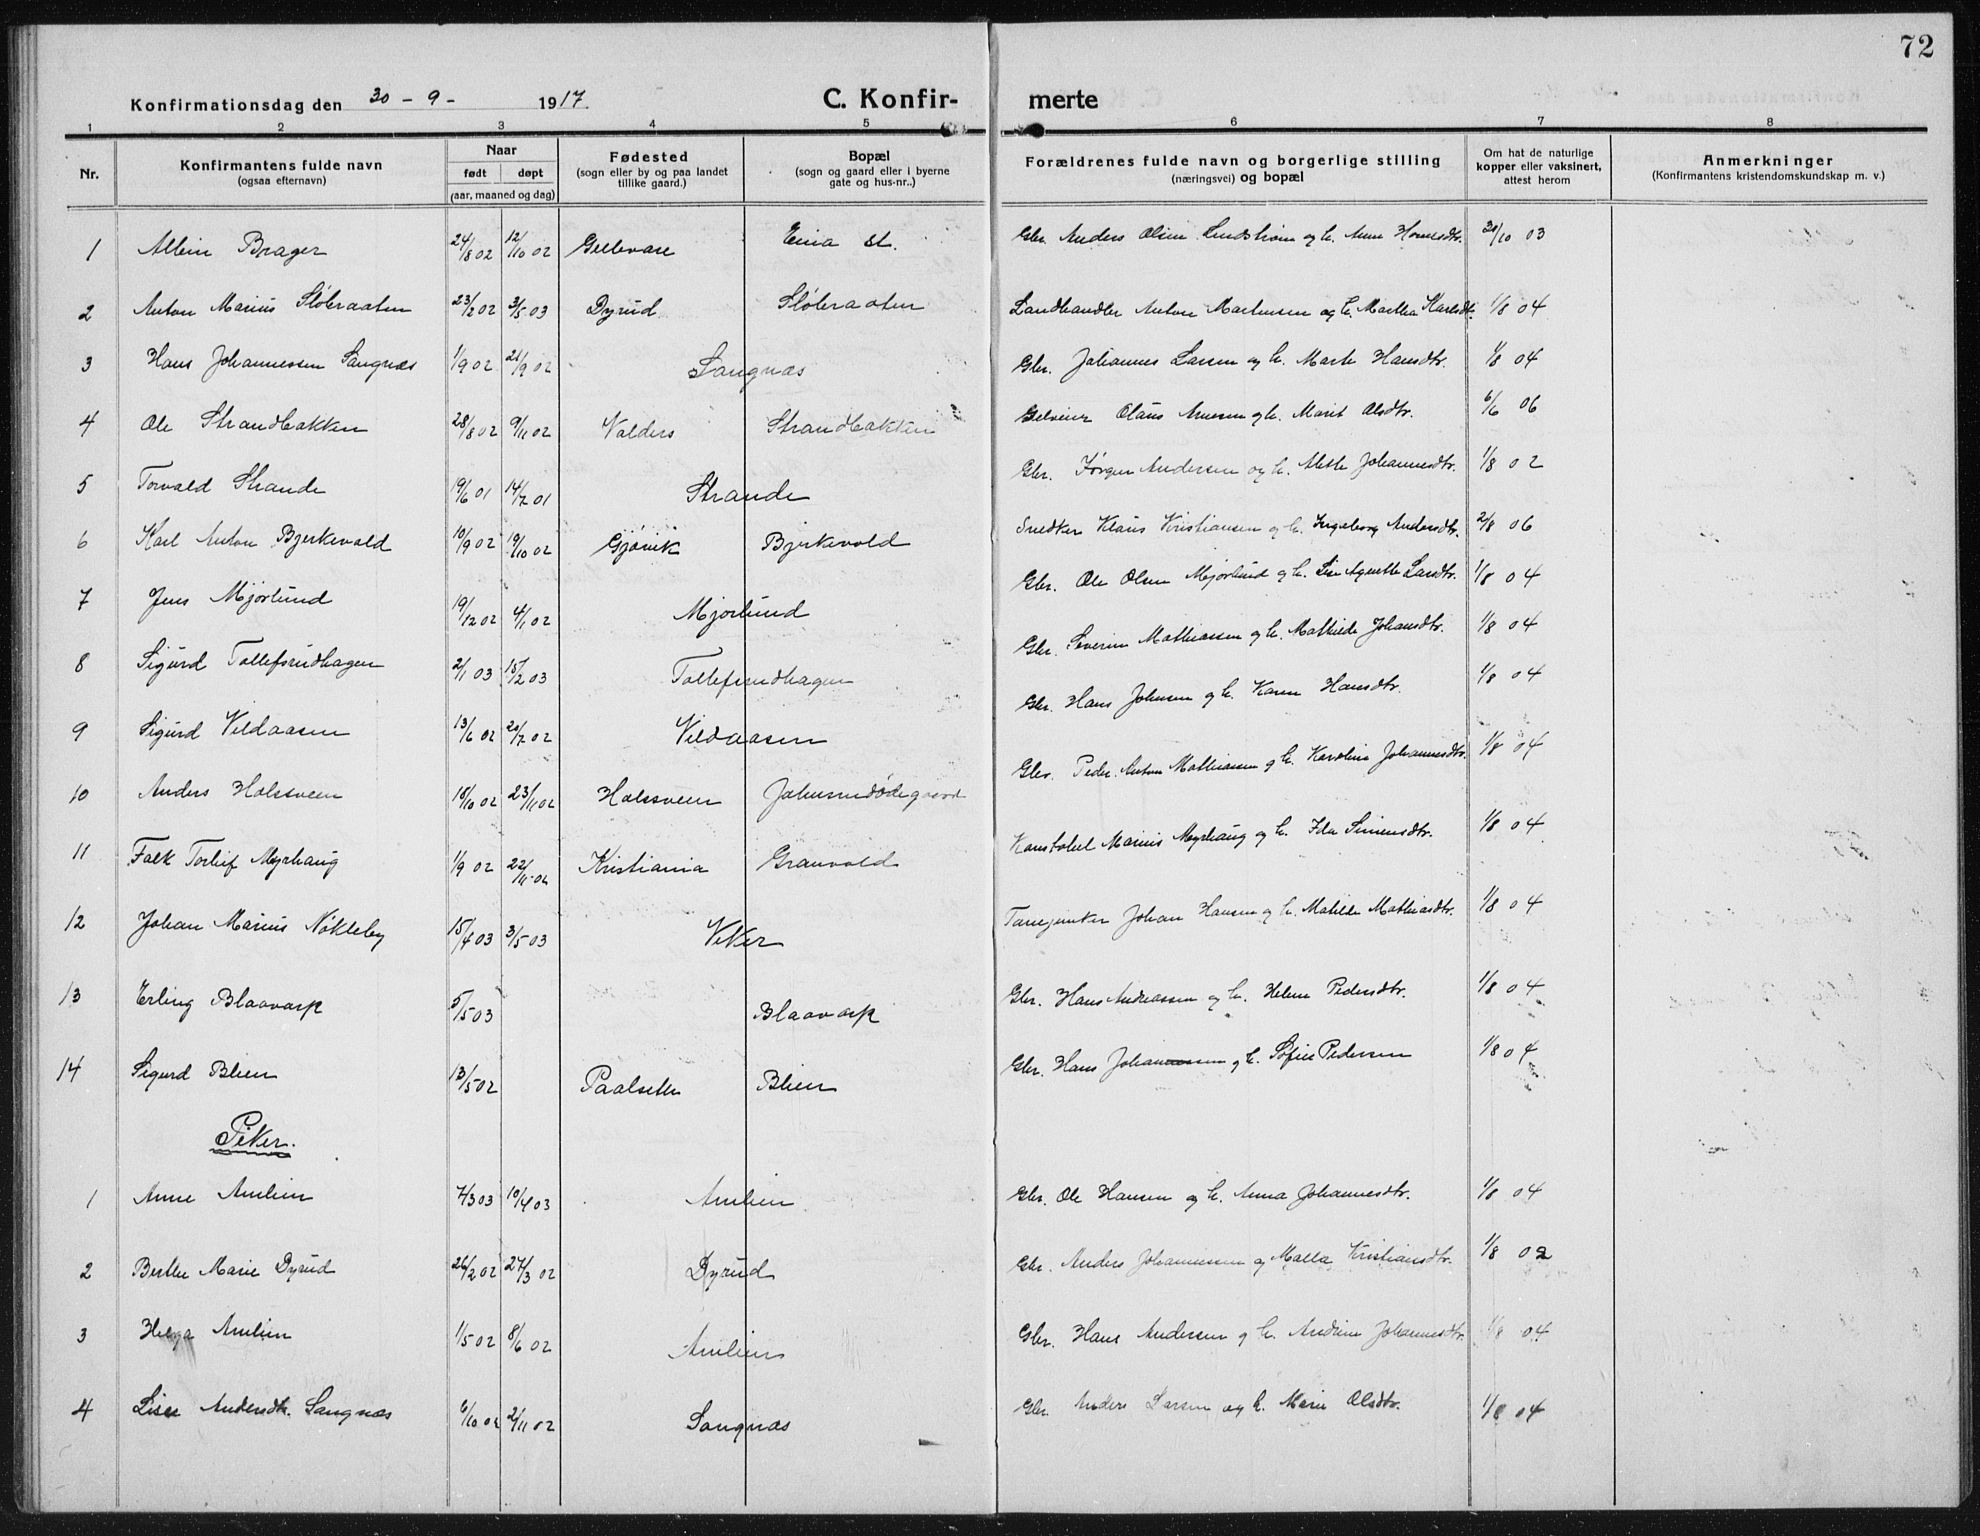 72
Konfirmationsdag den 30 - 9 - 1917.
C. Konfir-
merte
1 2 3 4 5 6 7 8
Nr.
Konfirmantens fulde navn
(ogsaa efternavn)
Naar
født døpt
(aar, maaned og dag)
Fødested
(sogn eller by og paa landet
tillike gaard.)
Bopæl
(sogn og gaard eller i byerne
gate og hus-nr..)
Forældrenes fulde navn og borgerlige stilling
(næringsvei) og bopæl
Om hat de naturlige
kopper eller vaksinert,
attest herom
Anmerkninger
(Konfirmantens kristendomskundskap m. v.)
1 Albin Brager 24/8 02 12/10 02 Gellevare Eina st. Gbr. Anders Olsen Lindstrøm og h. Anne Hansdtr. /10 03
2 Anton Marius Sløberaaten 23/2 02 3/5 03 Dyrud Sløberaaten Landhandler Anton Martinsen og h. Martha Karlsdtr. 1/8 04
3 Hans Johannessen Sangnæs 1/9 02 21/9 02 Sangnæs Gbr. Johannes Larsen og h. Marte Hansdtr. 1/8 04
4 Ole Strandbakken 28/8 02 9/11 02 Valders Strandbakken Selveier Olaus Arnesen og h. Marit Olsdtr. 6/6 06
5 Torvald Strande 19/6 01 14/7 01 Strande Gbr. Jørgen Andersen og h. Mette Johannesdtr. 1/8 02
6 Karl Anton Bjerkevold 10/9 02 19/10 02 Gjøvik Bjerkevold Snedker Klaus Kristiansen og h. Ingeborg Andersdtr. 2/8 06
7 Jens Mjørlund 19/12 02 4/1 02 Mjørlund Gbr. Ole Olsen Mjørlund og h. Lise Agnethe Larsdtr. 1/8 04
8 Sigurd Tollefsrudhagen 2/1 03 15/2 03 Tollefsrudhagen Gbr. Severin Mathiassen og h. Mathilde Johansdtr. 1/8 04
9 Sigurd Vildaasen 13/6 02 20/7 02 Vildaasen Gbr. Hans Johnsen og h. Karen Hansdtr. 1/8 04
10 Anders Halssveen 18/10 02 23/11 02 Halssveen Johnsrudødegaard Gbr. Peder Anton Mathiassen og h. Karoline Johannesdtr. 1/8 04
11 Falk Torleif Myrhaug 1/9 02 22/11 02 Kristiania Granvold Konstabel Marius Myrhaug og h. Ida Simensdtr. 1/8 04
12 Johan Marius Nøkleby 15/4 03 3/5 03 Viker Johan Hansen og h. Matilde Mathiasdtr. 1/8 04
13 Erling Blaavarp 5/5 03 Blaavarp Gbr. Hans Andreassen og h. Helene Pedersdtr. 1/8 04
14 Sigurd Blien 13/5 02 Paalseter Blien Gbr. Hans Johannessen og h. Sofie Pedersen 1/8 04
Piker.
1 Anne Amlien 7/3 03 10/4 03 Amlien Gbr. Ole Hansen og h. Anna Johannesdtr. 1/8 04
2 Berthe Marie Dyrud 26/2 02 27/3 02 Dyrud Gbr. Anders Johannessen og Malla Kristiansdtr. 1/8 02
3 Helga Amlien 1/5 02 8/6 02 Amlien Gbr. Hans Andersen og h. Andrine Johannesdtr. 1/8 04
4 Lise Andersdtr. Sangnæs 6/10 02 2/11 02 Sangnæs Gbr. Anders Larsen og h. Marie Olsdtr. 1/8 04